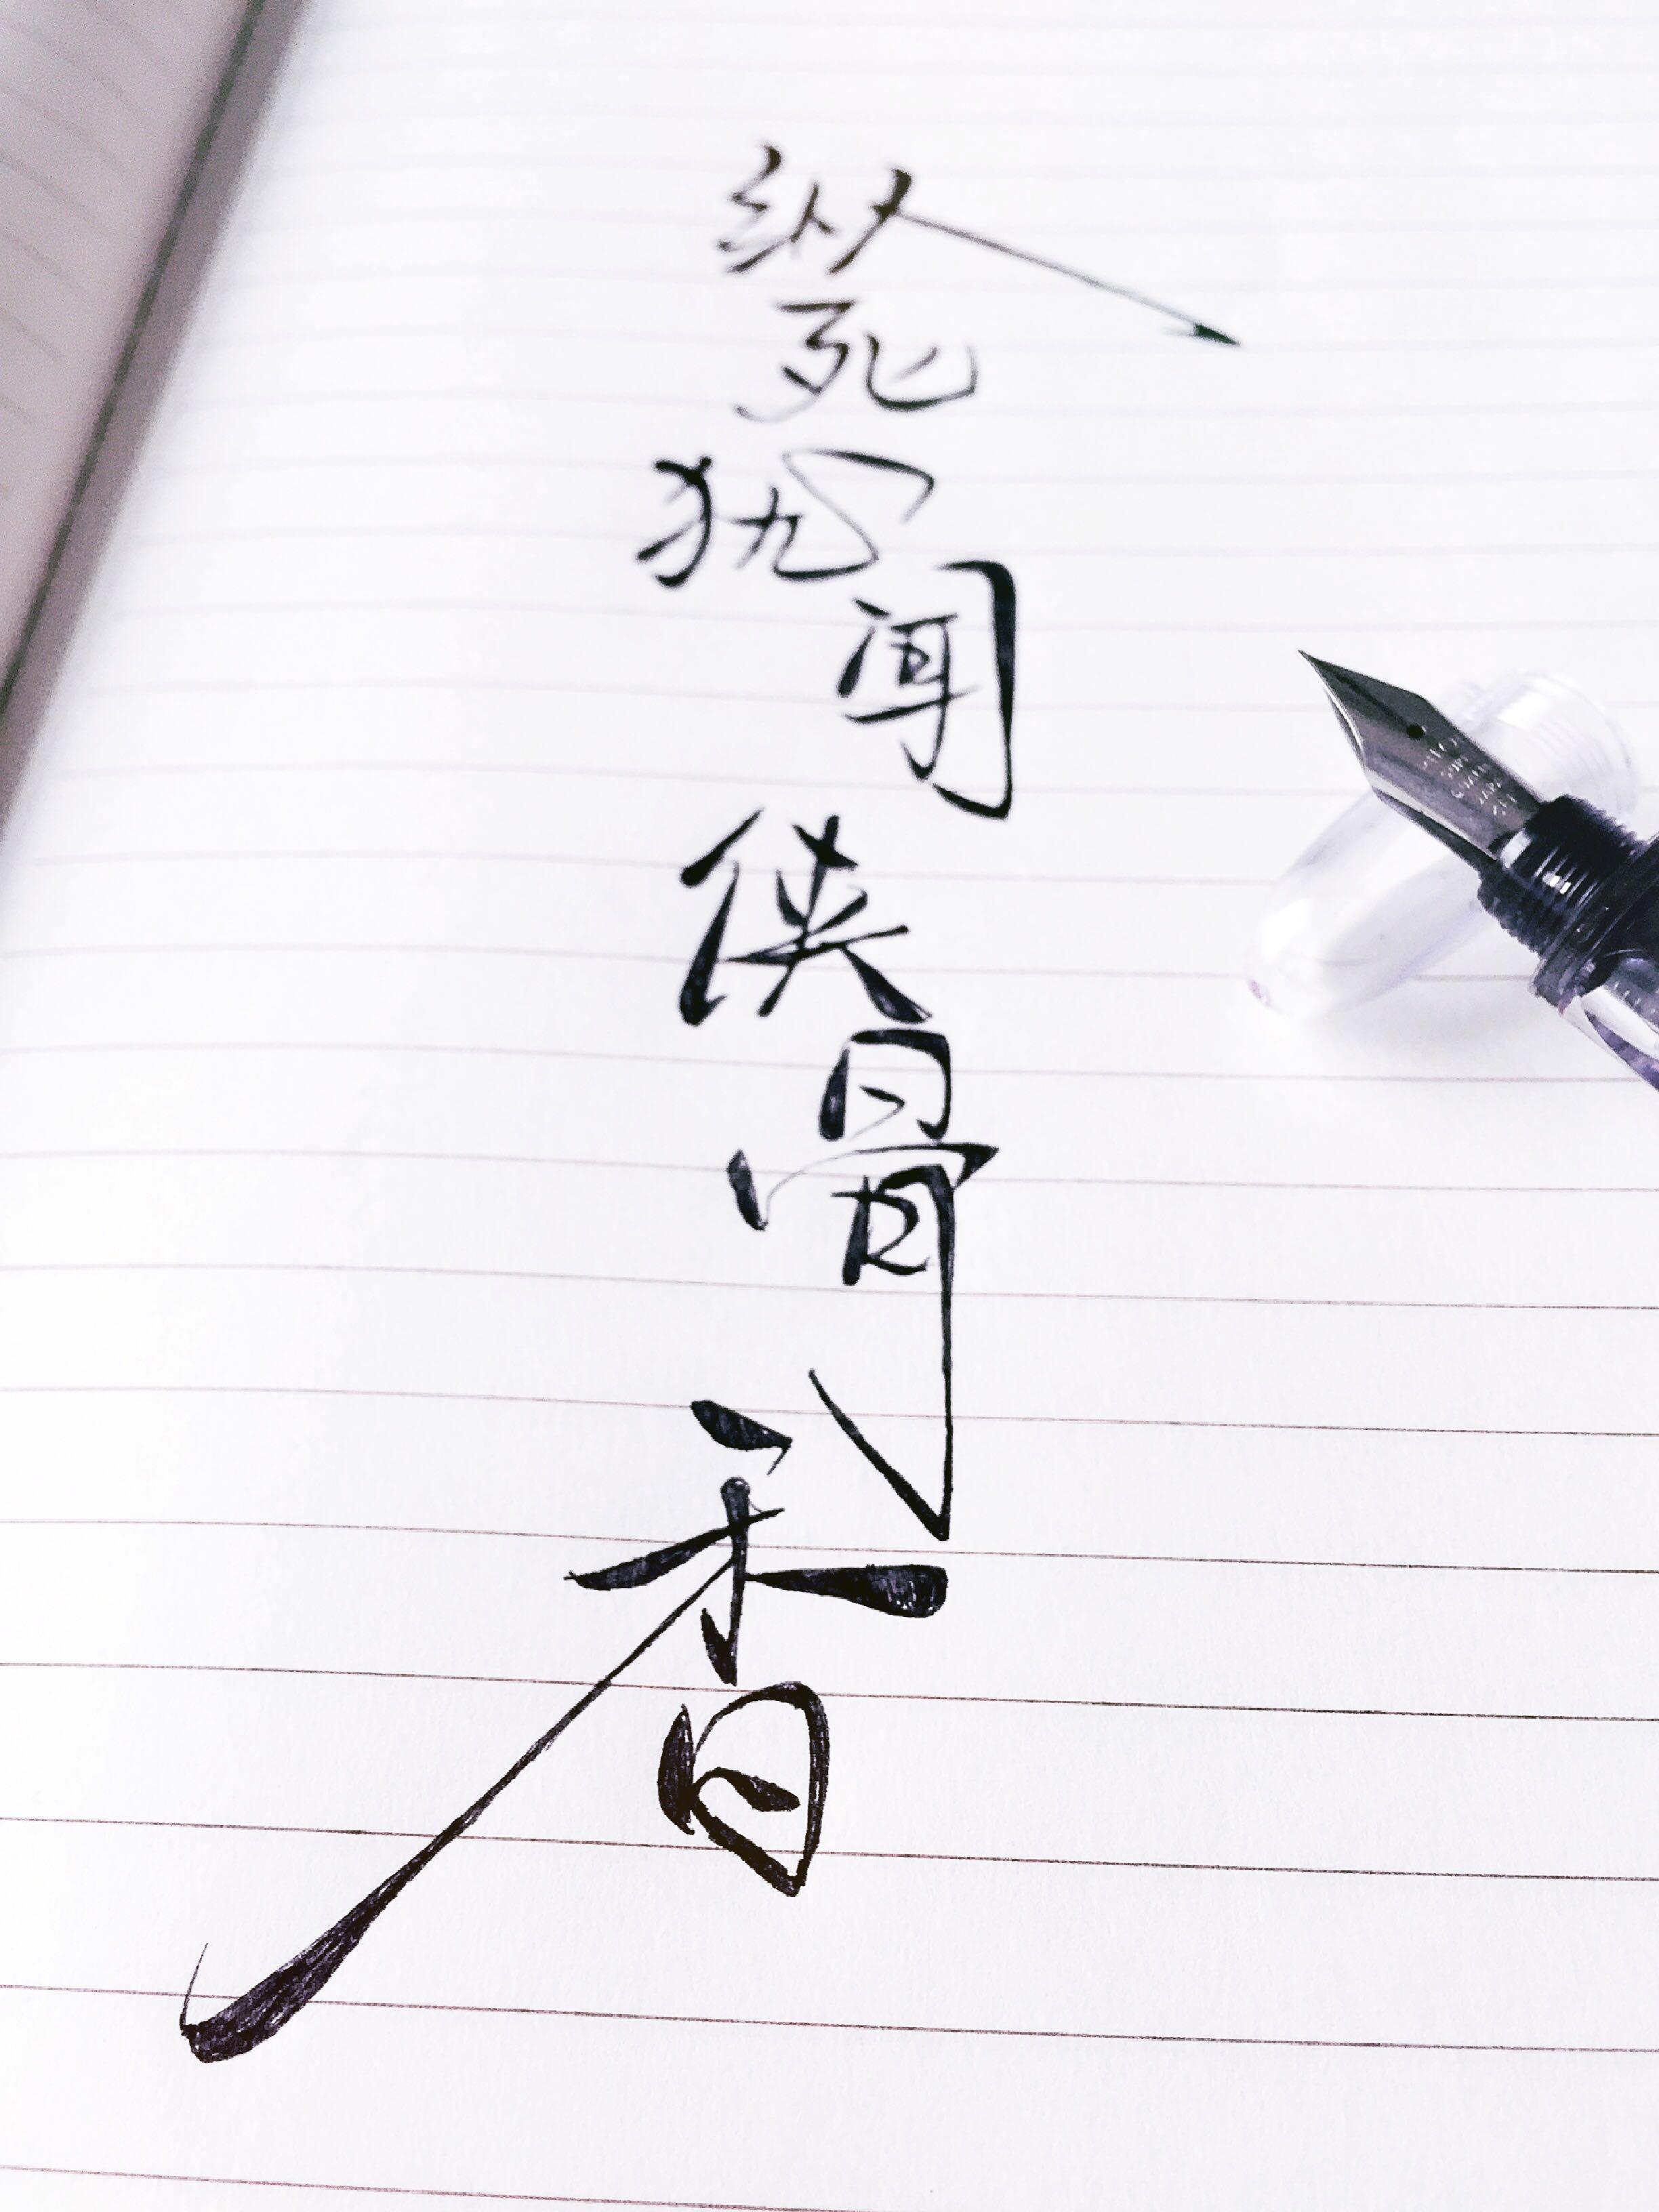 纵死犹闻侠骨香